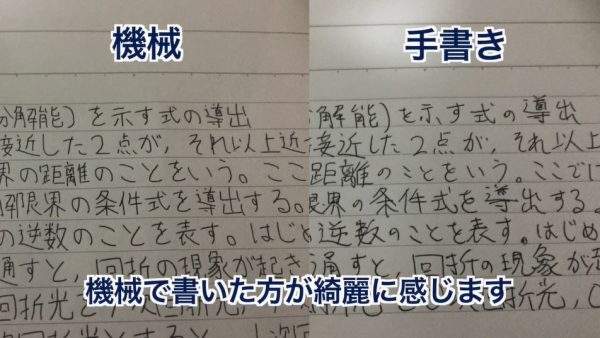 機械
手書き
分解能)を示す式の導出
接近した2点が,それ以上近
界の距離のことをいう。ここ
解限界の条件式を導出する。
の逆数のことを表す。はじめ
通すと,回折の現象が起き
解能)を示す式の導出
接近した2点が,それ以上
距離のことをいう。ここでは
限界の条件式を導出する。
逆数のことを表す。はじめ
通すと,回折の現象が
機械で書いた方が綺麗に感じます
回折光